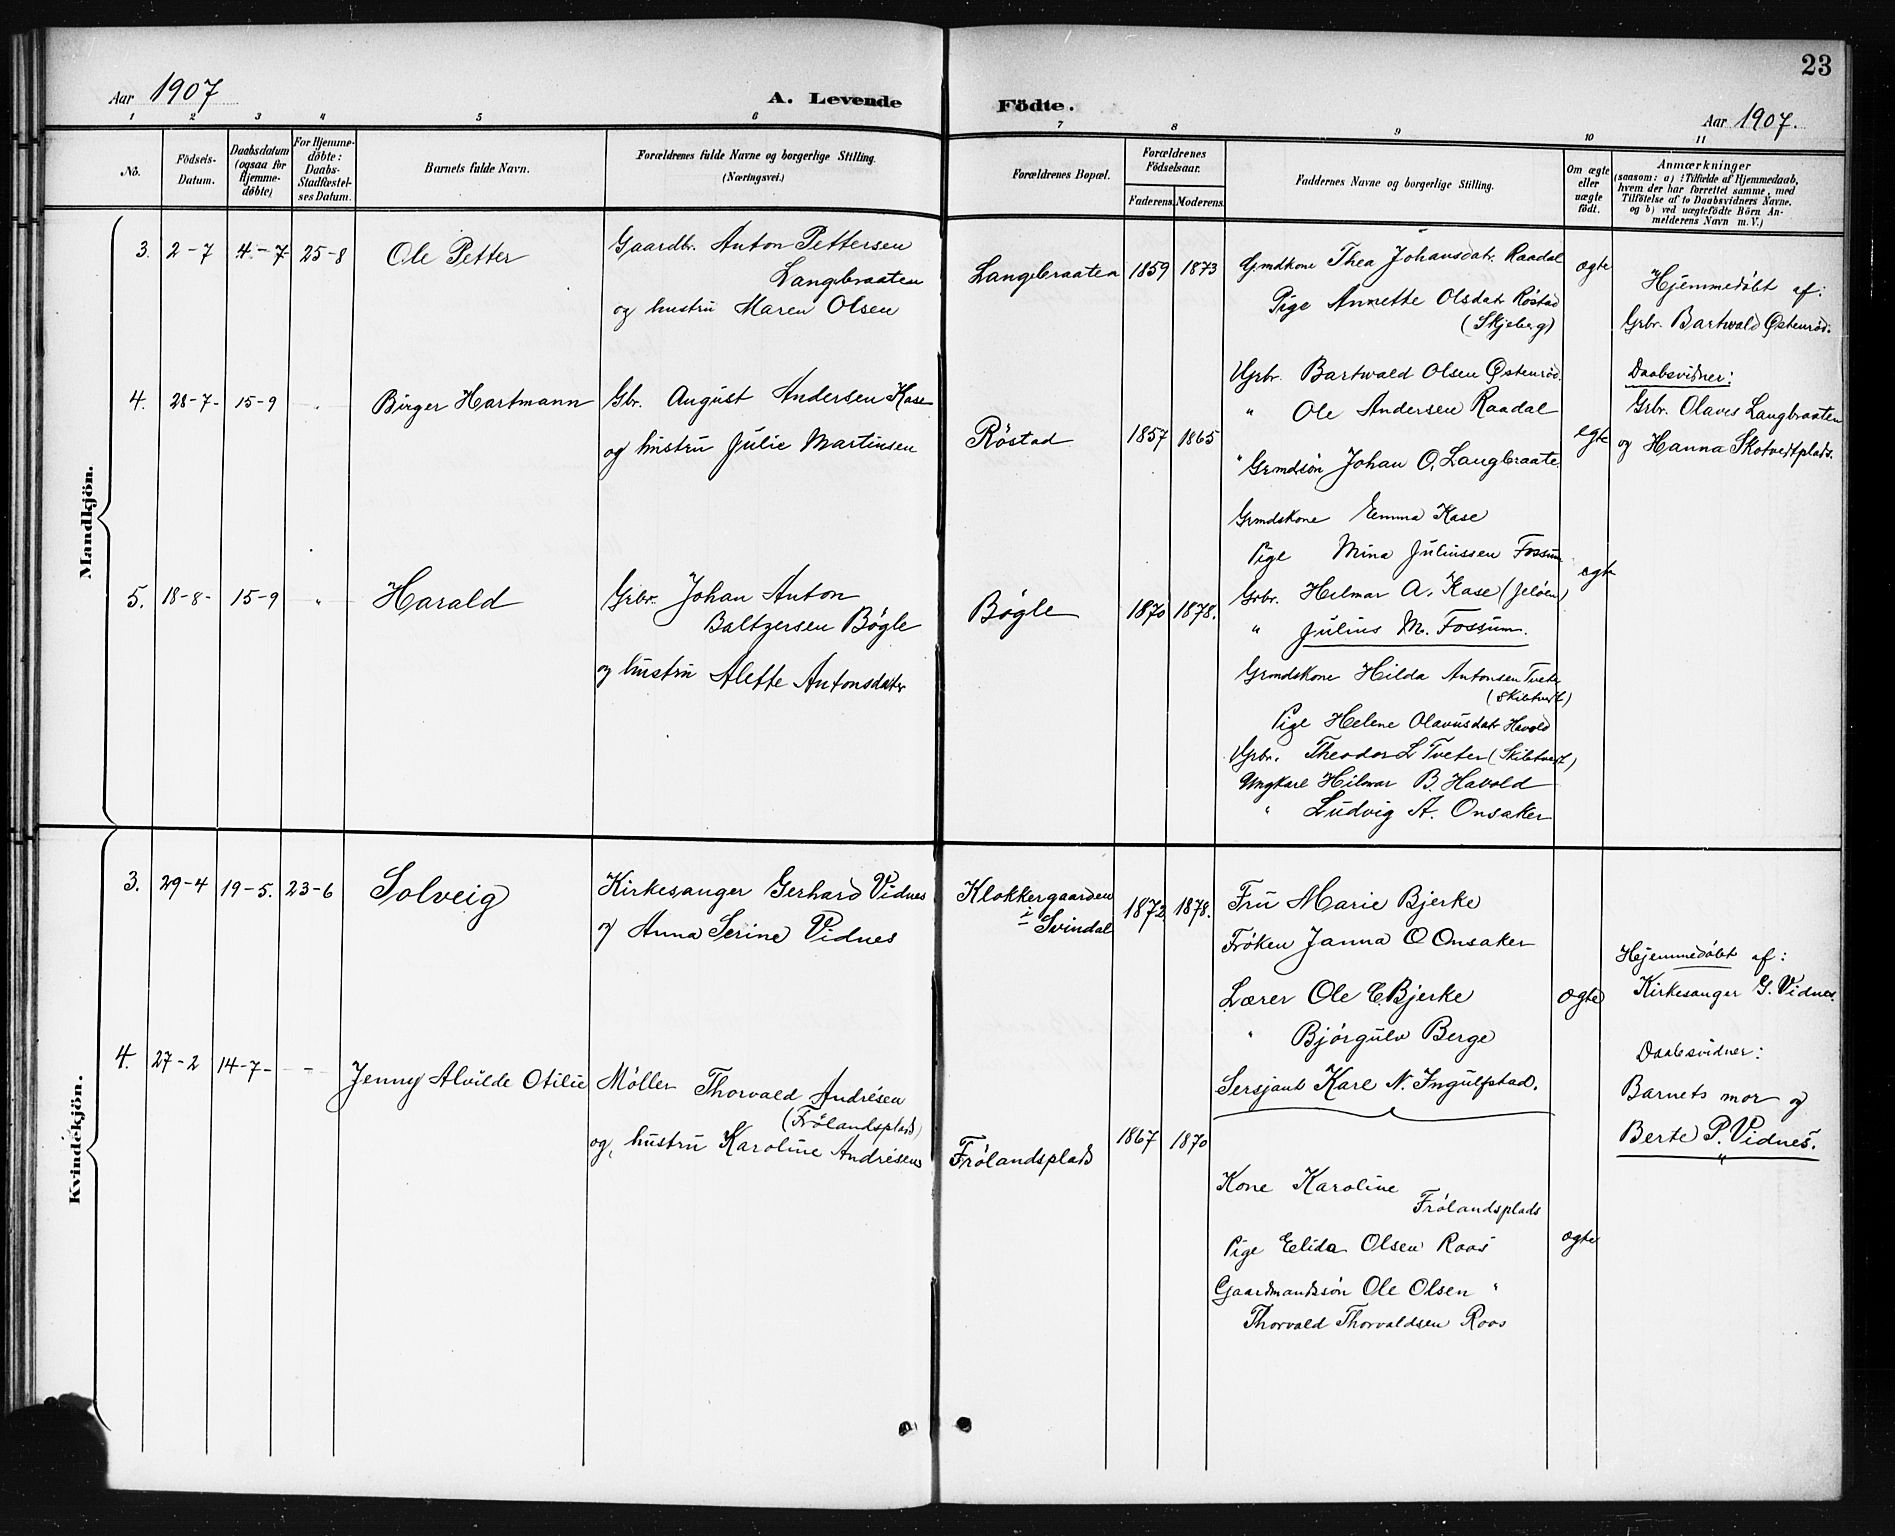 23
Aar 1907
A. Levende Födte.
Aar 1907.
1 2 3 4 5 6 7 8 9 10 11
No.
Födsels-
Datum.
Daabsdatum
(ogsaa for
Hjemme-
döbte)
For Hjemme-
döbte:
Daabs-
Stadfæstel-
ses Datum.
Barnets fulde Navn.
Forældrenes fulde Navne og borgerlige Stilling.
(Næringsvei.)
Forældrenes Bopæl.
Forældrenes
Födselsaar.
Faderens. Moderens.
Faddernes Navne og borgerlige Stilling.
Om ægte
eller
uægte
födt.
Anmærkninger
(saasom: a) i Tilfælde af Hjemmedaab,
hvem der har forrettet samme, med
Tilföielse af to Daabsvidners Navne.
og b) ved uægtefödte Börn An-
melderens Navn m. V.)
Mandkjön.
3. 2-7 4.-7 25-8 Ole Petter
Gaardbr. Anton Pettersen
Langbraaten
og hustru Maren Olsen
Langbraaten 1859 1873
Grmdkone Thea Johansdatr. Raadal
Pige Annette Olsdatr Röstad
(Skjeberg)
Ggrbr. Bartwald Olsen Østenröd.
" Ole Andersen Raadal
" Grmdsön Johan O. Langbraate.
ægte
Hjemmedöbt af:
Grbr. Bartwald Østenröd.
Daabsvidner:
Grbr. Olaves Langbraaten
og Hanna Skotvedtplads.
4. 28-7- 15-9 " Birger Hartmann
Gbr. August Andersen Kase
og hustru Julie Martinsen
Röstad 1857 1865
Grmdskone Emma Kase
Pige Mina Juliussen Fossum
Grbr. Hilmar A. Kase (Jelöen)
" Julius M. Fossum.
egte
5. 18-8- 15-9 " Harald
Grbr. Johan Anton
Baltzersen Bøgle
og hustru Alette Antonsdatr
Bøgle 1870 1878.
Grmdskone Hilda Antonsen Tveter
(Skibtvedt)
Pige Helene Olavusdatr Havold
Ggrbr. Theodor L Tveter (Skibtvedt)
Ungkarl Hilmar B. Havold
" Ludvig A. Onsaker
egte
Kvindekjön.
3. 29-4 19-5. 23-6 Solveig
Kirkesanger Gerhard Vidnes
og Anna Serine Vidnes
Klokkergaarden
i Svindal
1872 1878.
Fru Marie Bjerke
Fröken Janna O Onsaker
Lærer Ole E. Bjerke
" Bjørgulv Berge
Sersjant Karl N. Ingulfstad.
Ægte
Hjemmedöbt af:
Kirkesanger G. Vidnes.
Daabsvidner:
Barnets mor og
Berte P. Vidnes.
4. 27-2 14-7- Jenny Alvilde Otilie
Møller Thorvald Andrésen
(Frölandsplads)
og hustru Karoline Andrésen
Frölandsplads 1867 1870
Kone Karoline
Frölandsplads
Pige Elida Olsen Roos
Gaardmandssön Ole Olsen "
Thorvald Thorvaldsen Roos
ægte